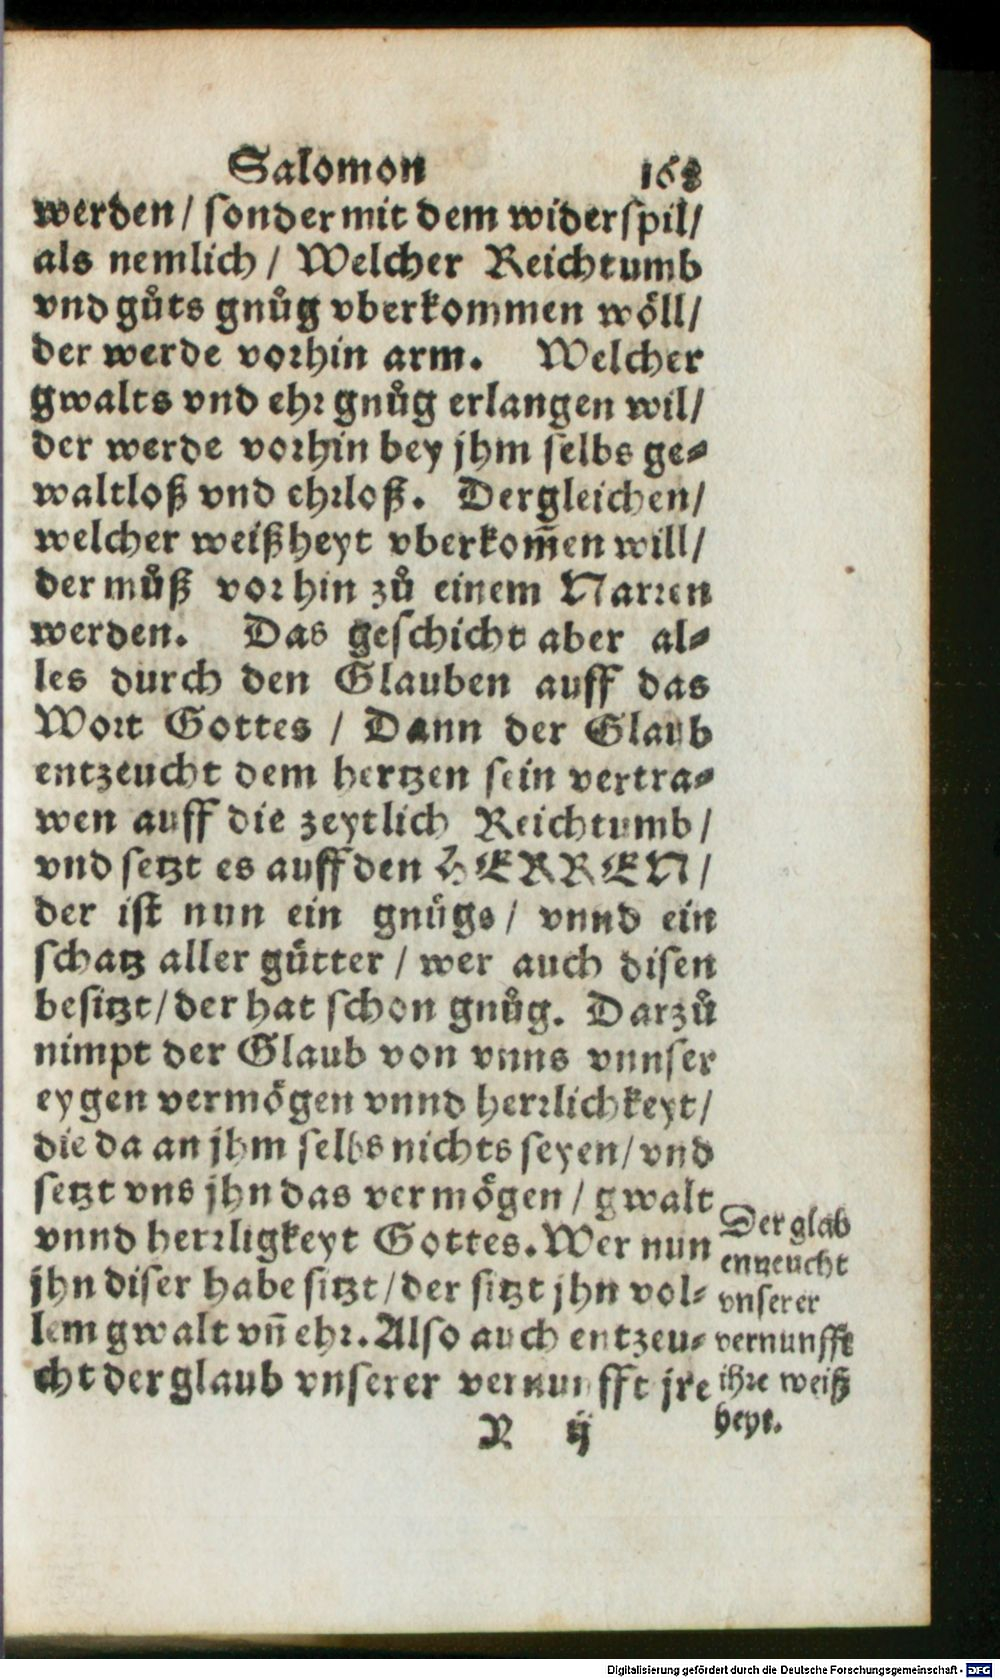 Salomon 168
werden / sonder mit dem widerspil /
als nemlich / Welcher Reichtumb
vnd gůts gnůg vberkommen wöll /
der werde vorhin arm. Welcher
gwalts vnd ehr gnůg erlangen wil /
der werde vorhin bey jhm selbs ge⸗
waltloß vnd ehrloß. Dergleichen /
welcher weißheyt vberkom̃en will /
der můß vorhin zů einem Narren
werden. Das geschicht aber al⸗
les durch den Glauben auff das
Wort Gottes / Dann der Glaub
entzeucht dem hertzen sein vertra⸗
wen auff die zeytlich Reichtumb /
vnd setzt es auff den HERREN /
der ist nun ein gnůgs / vnnd ein
schatz aller gůtter / wer auch disen
besitzt / der hat schon gnůg. Darzů
nimpt der Glaub von vnns vnnser
eygen vermögen vnnd herrlichkeyt /
die da an jhm selbs nichts seyen / vnd
setzt vns jhn das vermögen / gwalt
vnnd herrligkeyt Gottes. Wer nun
jhn diser habe sitzt / der sitzt jhn vol⸗
lem gwalt vñ ehr. Also auch entzeu⸗
cht der glaub vnserer vernunfft jre
Der glab
entzeucht
vnserer
vernunfft
ihre weiß
heyt.
R ij
Digitalisierung gefördert durch die Deutsche Forschungsgemeinschaft - DFG